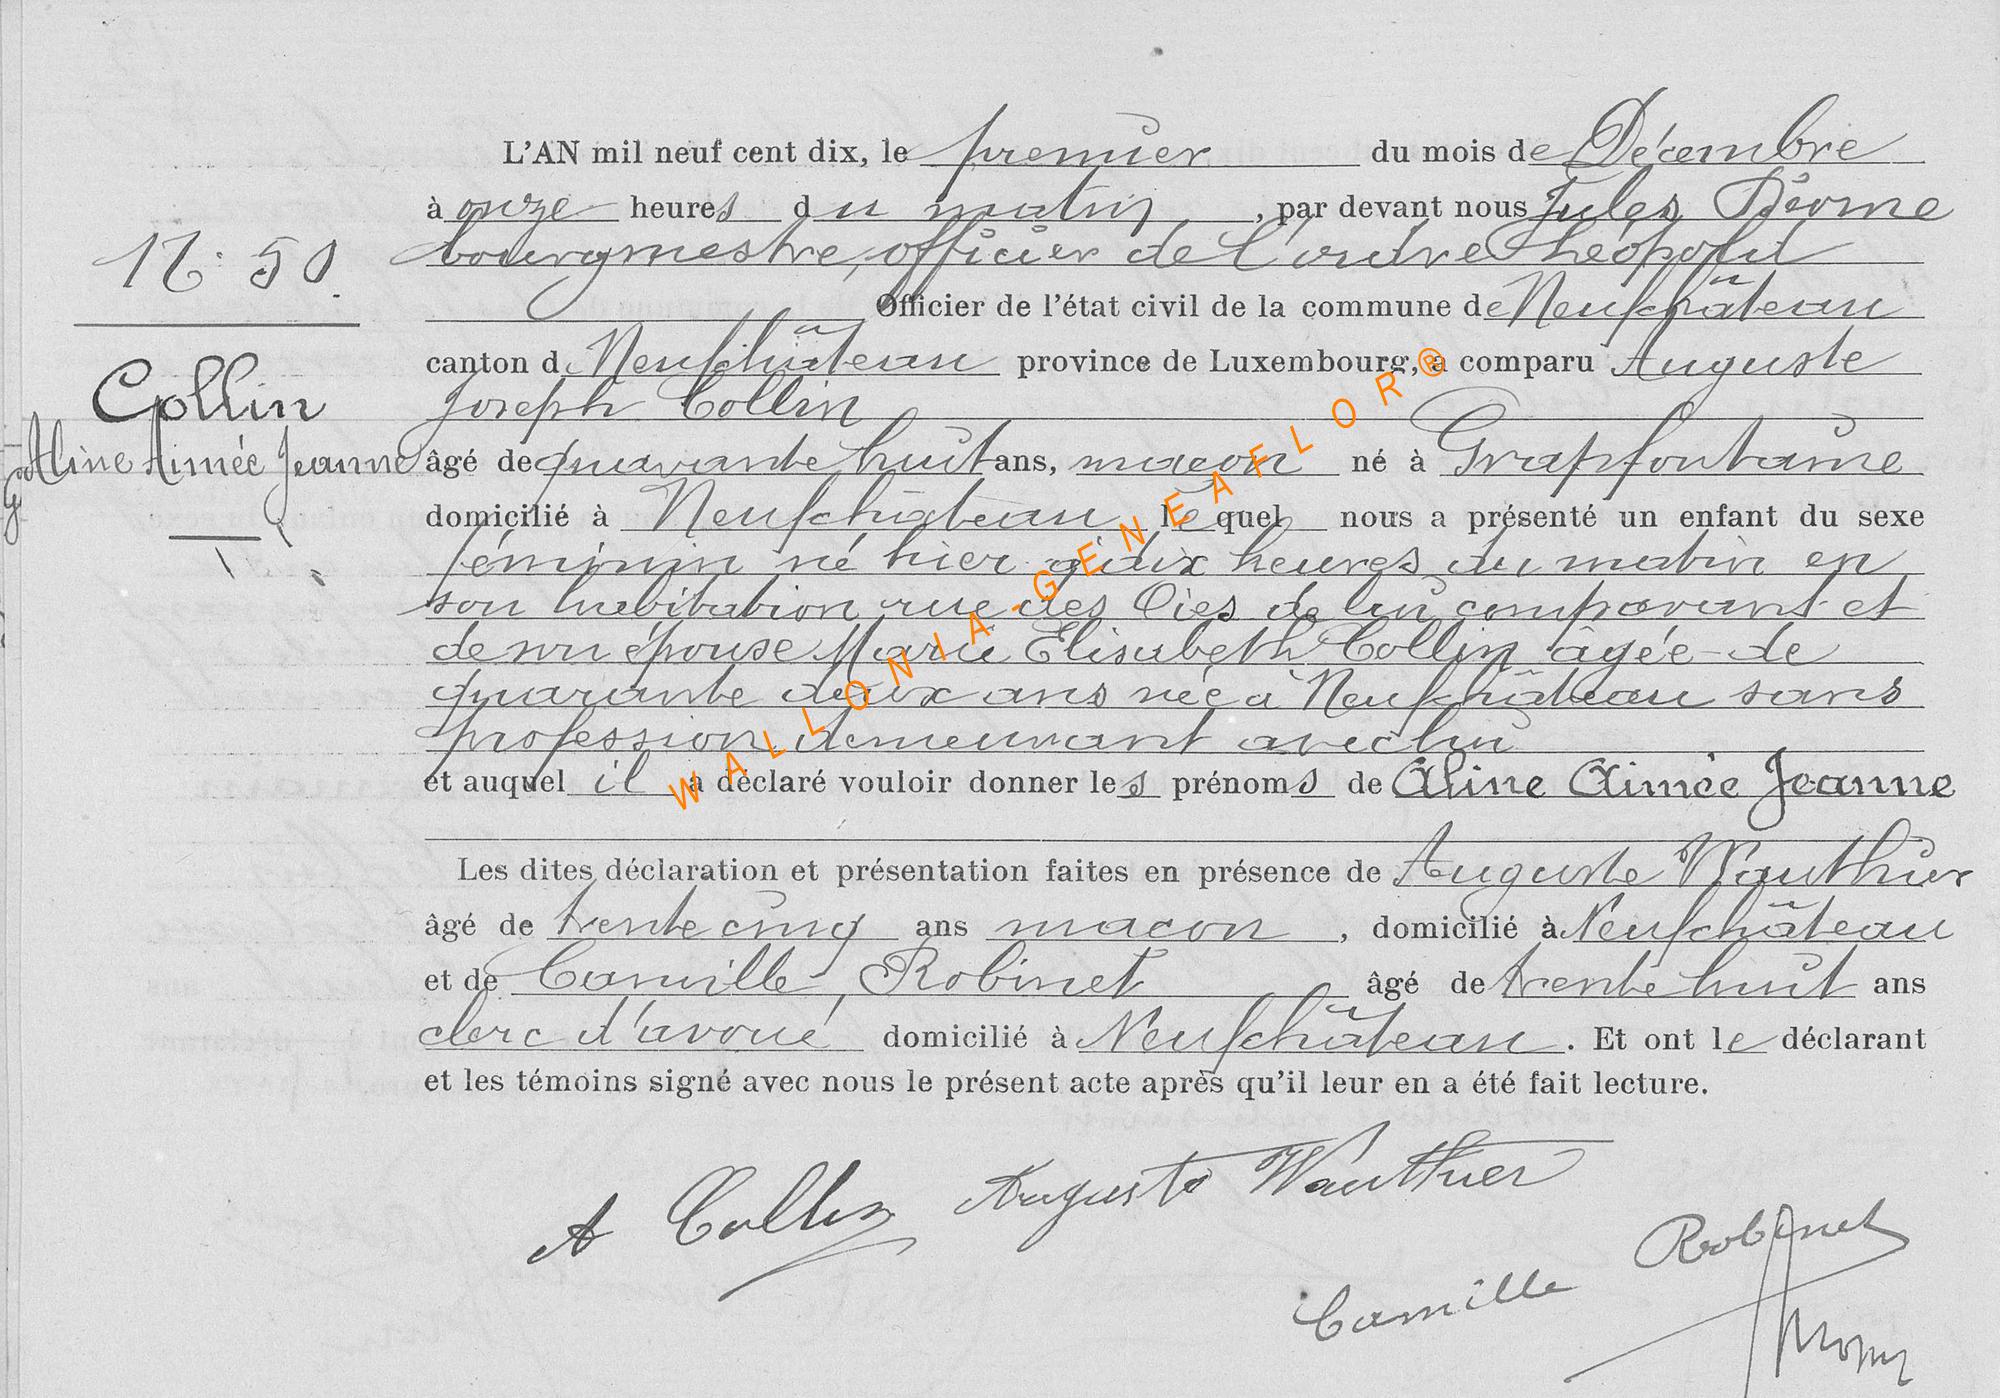 L'AN mil neuf cent dix, le premier du mois de Décembre
à onze heures du matin, par devant nous Jules
bourgmestre, officier de l'ordre Léopold
Officier de l'état civil de la commune de Neufchâteau
canton d Neufchâteau province de Luxembourg, a comparu Auguste
Joseph Collin
N: 50
Collin
Aline Aimée Jeanne
âgé de quarante huit ans, maçon né à Grapfontaine
domicilié à Neufchâteau lequel nous a présenté un enfant du sexe
féminin né hier à dix heures du matin en
son habitation rue des Oies de lui comparant et
de son épouse Marie Elisabeth Collin âgée de
quarante deux ans née à Neufchâteau sans
profession demeurant avec lui
et auquel il a déclaré vouloir donner les prénoms de Aline Aimée Jeanne
Les dites déclaration et présentation faites en présence de Auguste Wauthier
âgé de trente cinq ans macon, domicilié à Neufchâteau
et de Camille Robinet âgé de trente huit ans
clerc d'avoué domicilié à Neufchâteau. Et ont le déclarant
et les témoins signé avec nous le présent acte après qu'il leur en a été fait lecture.
A Collin Auguste Wauthier
Camille Robinet
WALLONIA-GENEAFLOR®